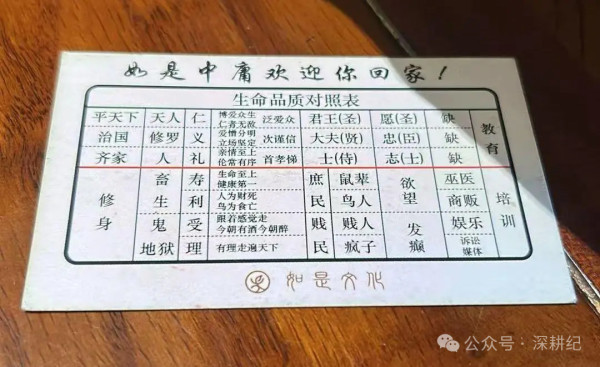 如是中庸欢迎你回家！
生命品质对照表
平天下 天人 仁 博爱众生 仁者无敌 泛爱众 君王(圣) 愿(圣) 缺 教育
治国 修罗 义 爱憎分明 立场坚定 次谨信 大夫(贤) 忠(臣) 缺
齐家 人 礼 亲情至上 伦常有序 首孝悌 士(侍) 志(士) 缺
修身 畜生 寿 生命至上 健康第一 庶民 鼠辈 欲望 巫医 培训
利 人为财死 鸟为食亡 鸟人 商贩
鬼 受 跟着感觉走 今朝有酒今朝醉 贱民 贱人 发癫 娱乐
地狱 理 有理走遍天下 疯子 诉讼 媒体
如是文化
公众号·深耕纪